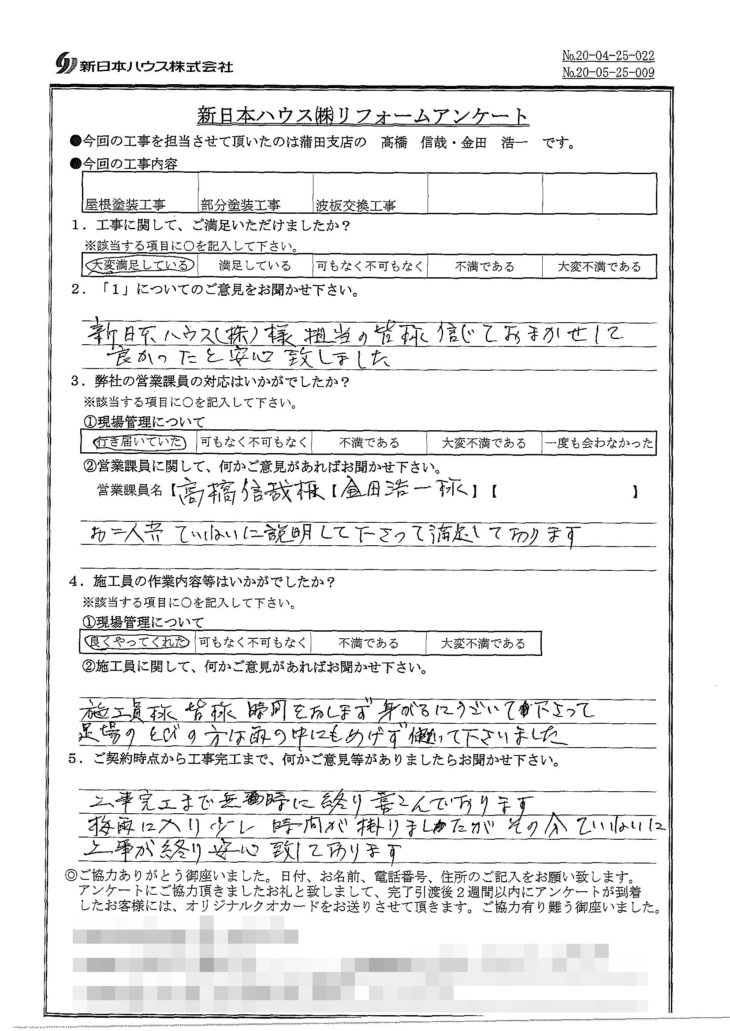 新日本ハウス株式会社
No.20-04-25-022
No.20-05-25-009
新日本ハウス㈱リフォームアンケート
●今回の工事を担当させて頂いたのは蒲田支店の 髙橋 信哉・金田 浩一 です。
●今回の工事内容
屋根塗装工事 部分塗装工事 波板交換工事
1．工事に関して、ご満足いただけましたか？
※該当する項目に○を記入して下さい。
大変満足している 満足している 可もなく不可もなく 不満である 大変不満である
2．「1」についてのご意見をお聞かせ下さい。
新日本ハウス(株)様担当の皆様信じておまかせして
良かったと安心致しました
3．弊社の営業課員の対応はいかがでしたか？
※該当する項目に○を記入して下さい。
①現場管理について
行き届いていた 可もなく不可もなく 不満である 大変不満である 一度も会わなかった
②営業課員に関して、何かご意見があればお聞かせ下さい。
営業課員名【高橋信哉様】【金田浩一様】【 】
お二人共ていねいに説明して下さって満足して居ります
4．施工員の作業内容等はいかがでしたか？
※該当する項目に○を記入して下さい。
①現場管理について
良くやってくれた 可もなく不可もなく 不満である 大変不満である
②施工員に関して、何かご意見があればお聞かせ下さい。
施工員様 皆様 時間をおしまず身がるにうごいて下さって
足場のとびの方は雨の中にもめげず働いて下さいました
5．ご契約時点から工事完工まで、何かご意見等がありましたらお聞かせ下さい。
工事完工まで無事時に終り喜こんで居ります
梅雨に入り少し時間が掛りましたがその分ていねいに
工事が終り安心致して居ります
◎ご協力ありがとう御座いました。日付、お名前、電話番号、住所のご記入をお願い致します。
アンケートにご協力頂きましたお礼と致しまして、完了引渡後2週間以内にアンケートが到着
したお客様には、オリジナルクオカードをお送りさせて頂きます。ご協力有り難う御座いました。